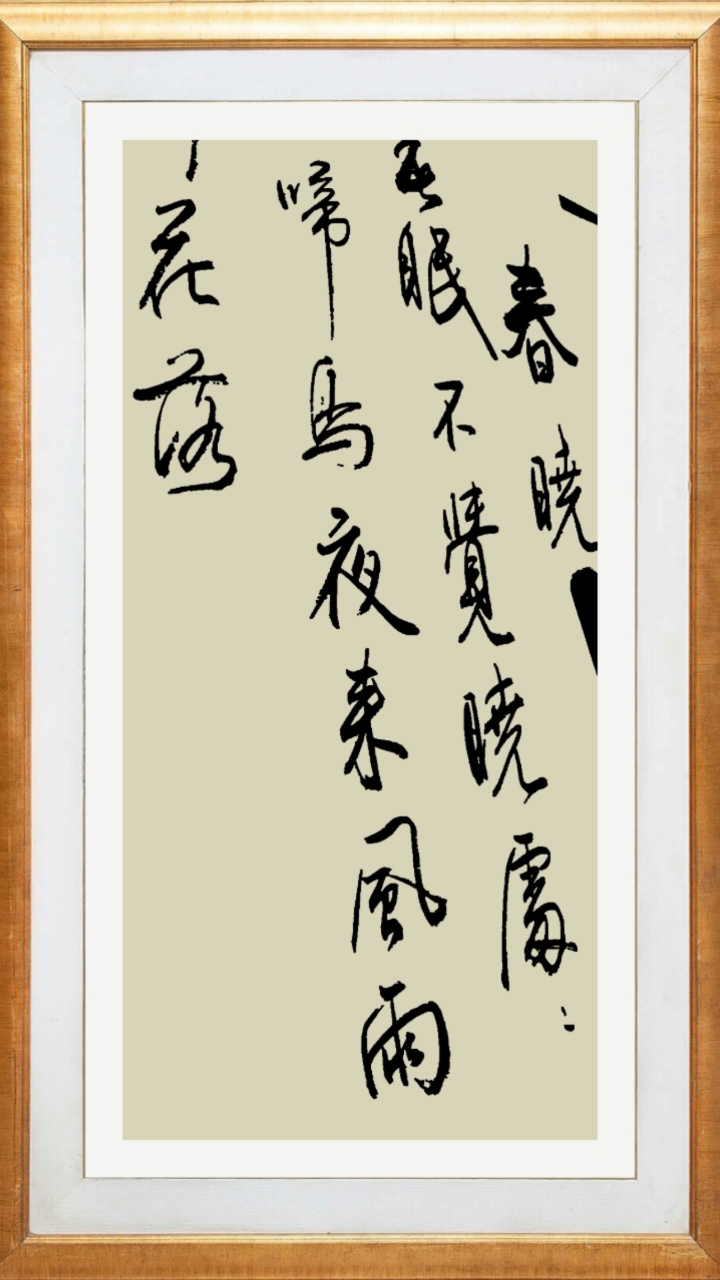 春曉
春眠不覺曉處〻
啼鳥夜來風雨
花落